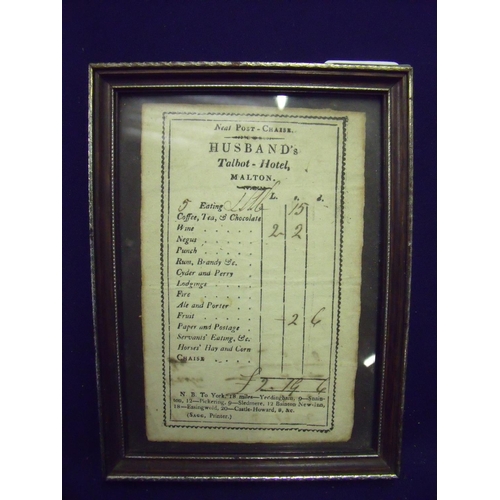 Neat Post-Chaise.
HUSBAND's
Talbot-Hotel,
MALTON.
L. s. d.
5 Eating 15
Coffee, Tea, & Chocolate
Wine . . . . . 2 2
Negus . . . . .
Punch . . . . .
Rum, Brandy &c. .
Cyder and Perry .
Lodgings . . . .
Fire . . . . .
Ale and Porter . .
Fruit . . . . . 2 6
Paper and Postage .
Servants' Eating, &c.
Horses' Hay and Corn
Chaise . . . .
£ 2 19 6
N. B. To York, 18 miles—Yeddingham, 9—
12—Pickering, 9—Sledmere, 12 New-Inn,
18—Easingwold, 20—Castle-Howard, 8, &c.
Printer.)